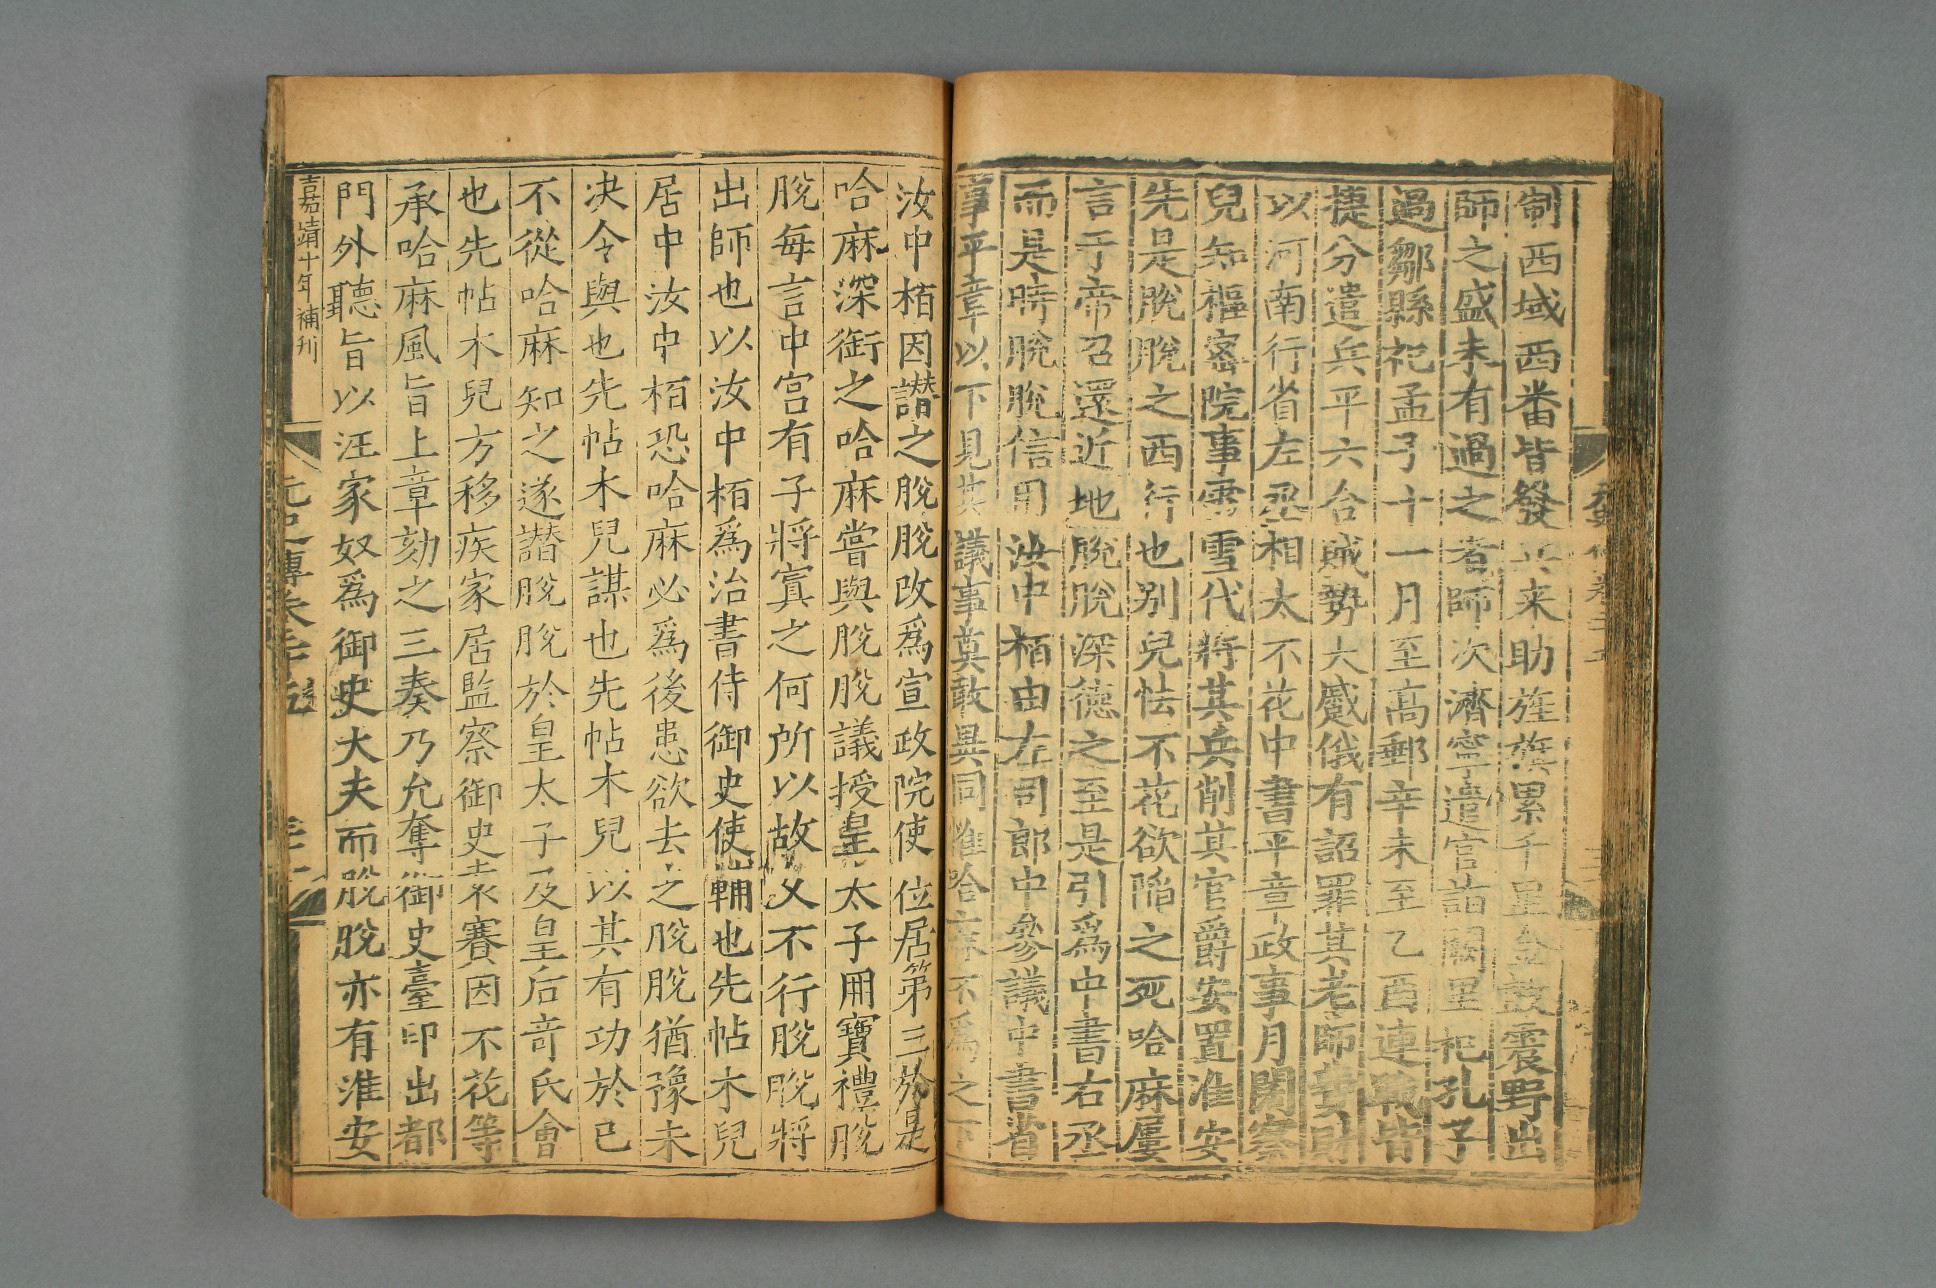 制西域西番皆發兵来助旌旗累千里金鼓震野出
師之盛未有過之者師次濟寧遣官詣闕里祀孔子
過鄒縣祀孟子十一月至高郵辛未至乙酉連戰皆
捷分遣兵平六合賊勢大蹙俄有詔罪其老師費財
以河南行省左丞相太不花中書平章政事月闊察
兒知樞密院事雪雪代將其兵削其官爵安置淮安
先是脫脫之西行也别兒怯不花欲陷之死哈麻屢
言于帝召還近地脫脫深德之至是引爲中書右丞
而是時脫脫信用汝中栢由左司郎中參議中書省
事平章以下見其議事莫敢異同惟哈麻不爲之下
汝中栢因譖之脫脫改爲宣政院使位居第三於是
哈麻深銜之哈麻嘗與脫脫議授皇太子冊寶禮脫
脫每言中宮有子將寘之何所以故父不行脫脫將
出師也以汝中栢爲治書侍御史使輔也先帖木兒
居中汝中栢恐哈麻必爲後患欲去之脫脫猶豫未
决令與也先帖木兒謀也先帖木兒以其有功於已
不從哈麻知之遂譖脫脫於皇太子及皇后竒氏會
也先帖木兒方移疾家居監察御史袁賽因不花等
承哈麻風旨上章劾之三奏乃允奪御史臺印出都
門外聽旨以汪家奴爲御史大夫而脫脫亦有淮安
嘉靖十年補刊
元史傳卷二十五